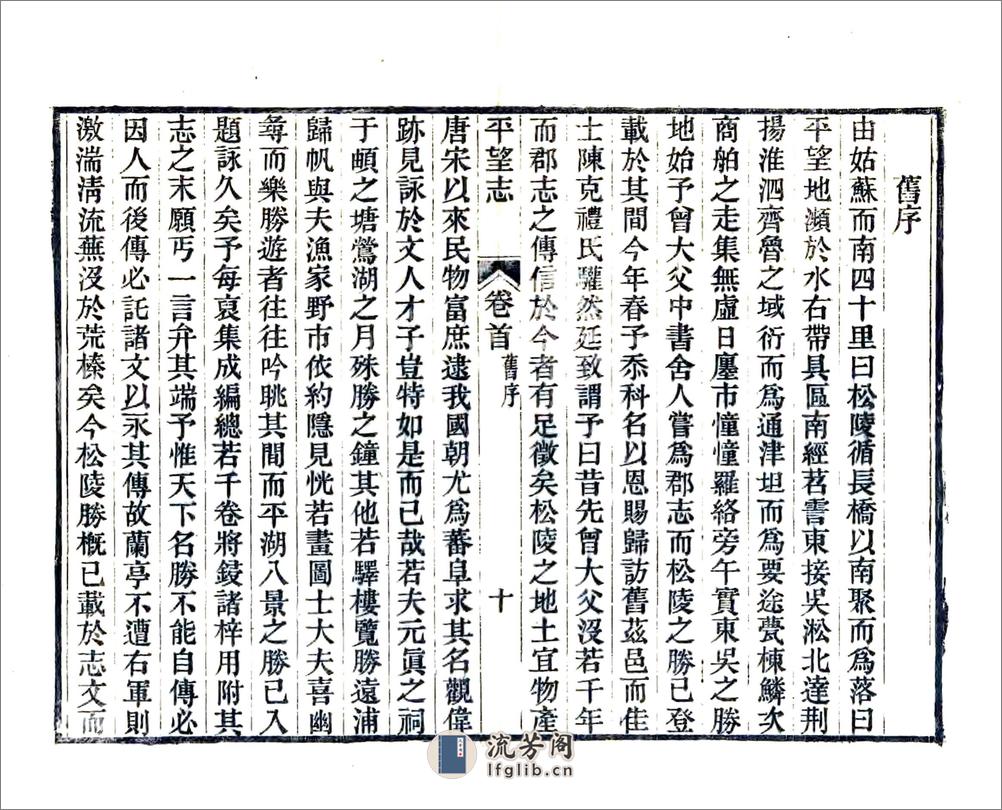 舊序
由姑蘇而南四十里曰松陵循長橋以南聚而爲落曰
平望地瀕於水右帶具區南經苕霅東接吳淞北達荆
揚淮泗齊魯之域衍而爲通津坦而爲要途甍棟鱗次
商舶之走集無虛日廛市憧憧羅絡旁午實東吳之勝
地始予曾大父中書舍人嘗爲郡志而松陵之勝已登
載於其間今年春予忝科名以恩賜歸訪舊茲邑而佳
士陳克禮氏驩然延致謂予曰昔先曾大父沒若干年
而郡志之傳信於今者有足徵矣松陵之地土宜物產
平望志 卷首 舊序 十
唐宋以來民物富庶逮我國朝尤爲蕃阜求其名觀偉
跡見詠於文人才子豈特如是而已哉若夫元眞之祠
于頔之塘鶯湖之月殊勝之鐘其他若驛樓覽勝遠浦
歸帆與夫漁家野市依約隱見恍若畫圖士大夫喜幽
尋而樂勝遊者往往吟眺其間而平湖八景之勝已入
題詠久矣予每裒集成編總若干卷將鋟諸梓用附其
志之末願丐一言弁其端予惟天下名勝不能自傳必
因人而後傳必託諸文以永其傳故蘭亭不遭右軍則
激湍淸流蕪沒於荒榛矣今松陵勝槪已載於志文而
流芳阁
lfglib.cn